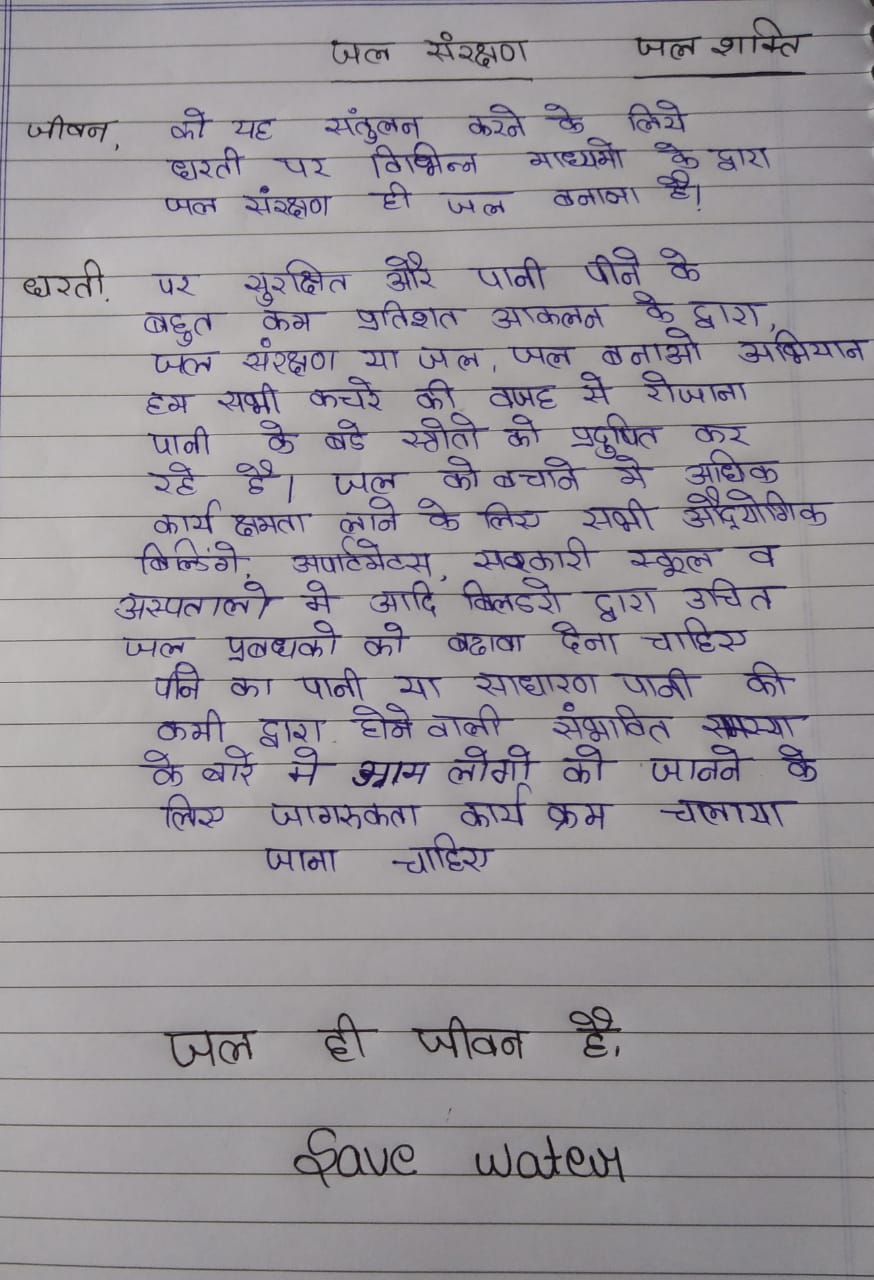 जल संरक्षण जल शक्ति
जीवन, को यह संतुलन करने के लिये
धरती पर विभिन्न माध्यमो के द्वारा
जल संरक्षण ही जल बनाना है।
धरती. पर सुरक्षित और पानी पीने के
बहुत कम प्रतिशत आकलन के द्वारा,
जल संरक्षण या जल, जल बनाओ अभियान
हम सभी कचरे की वजह से रोजाना
पानी के बडे स्त्रोतो को प्रदुषित कर
रहे है। जल को बचाने मे अधिक
कार्य क्षमता लाने के लिए सभी औद्योगिक
बिल्डिंगे, अपार्टमेटस, सरकारी स्कूल व
अस्पतालो मे आदि बिलडरो द्वारा उचित
जल प्रबधको को बढावा देना चाहिए
पिने का पानी या साधारण पानी की
कमी द्वारा होने वाली संभावित समस्या
के बारे मे आम लोगो को जानने के
लिए जागरुकता कार्य क्रम चलाया
जाना चाहिए
जल ही जीवन है.
Save water